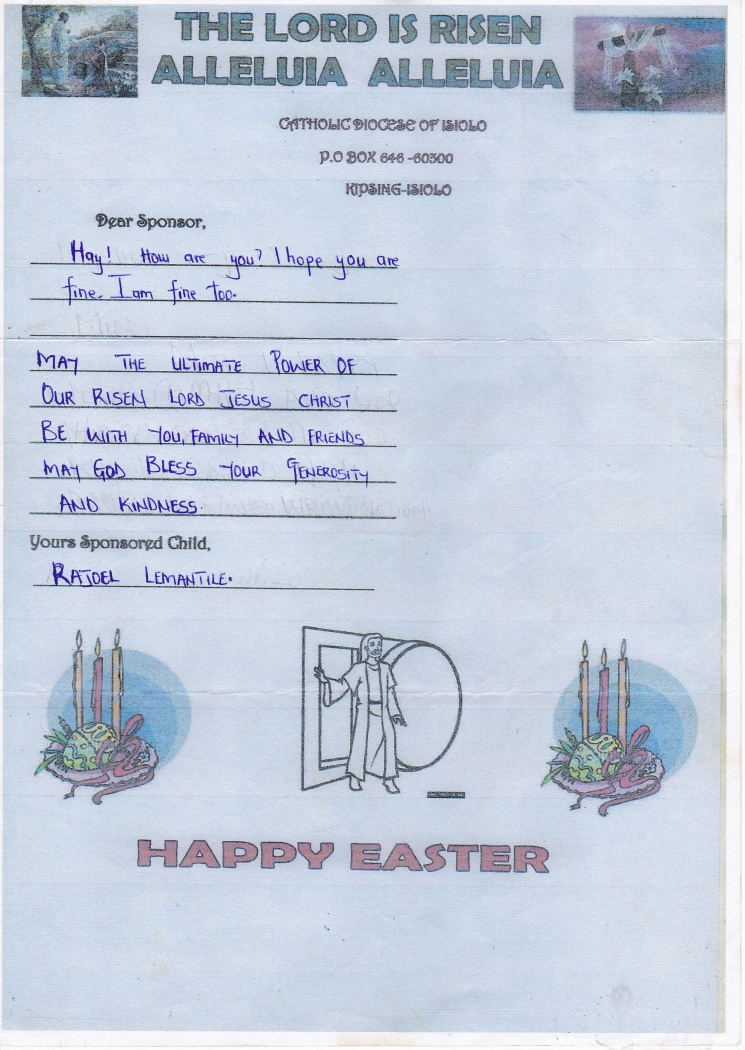 THE LORD IS RISEN
ALLELUIA ALLELUIA
CATHOLIC DIOCESE OF ISIOLO
P.O BOX 646 -60300
KIPSING-ISIOLO
Dear Sponsor,
Hay! How are you? I hope you are
fine. I am fine too.
MAY THE ULTIMATE POWER OF
OUR RISEN LORD JESUS CHRIST
BE WITH YOU, FAMILY AND FRIENDS
MAY GOD BLESS YOUR GENEROSITY
AND KINDNESS.
Yours Sponsored Child,
RAJOEL LEMANTILE.
HAPPY EASTER